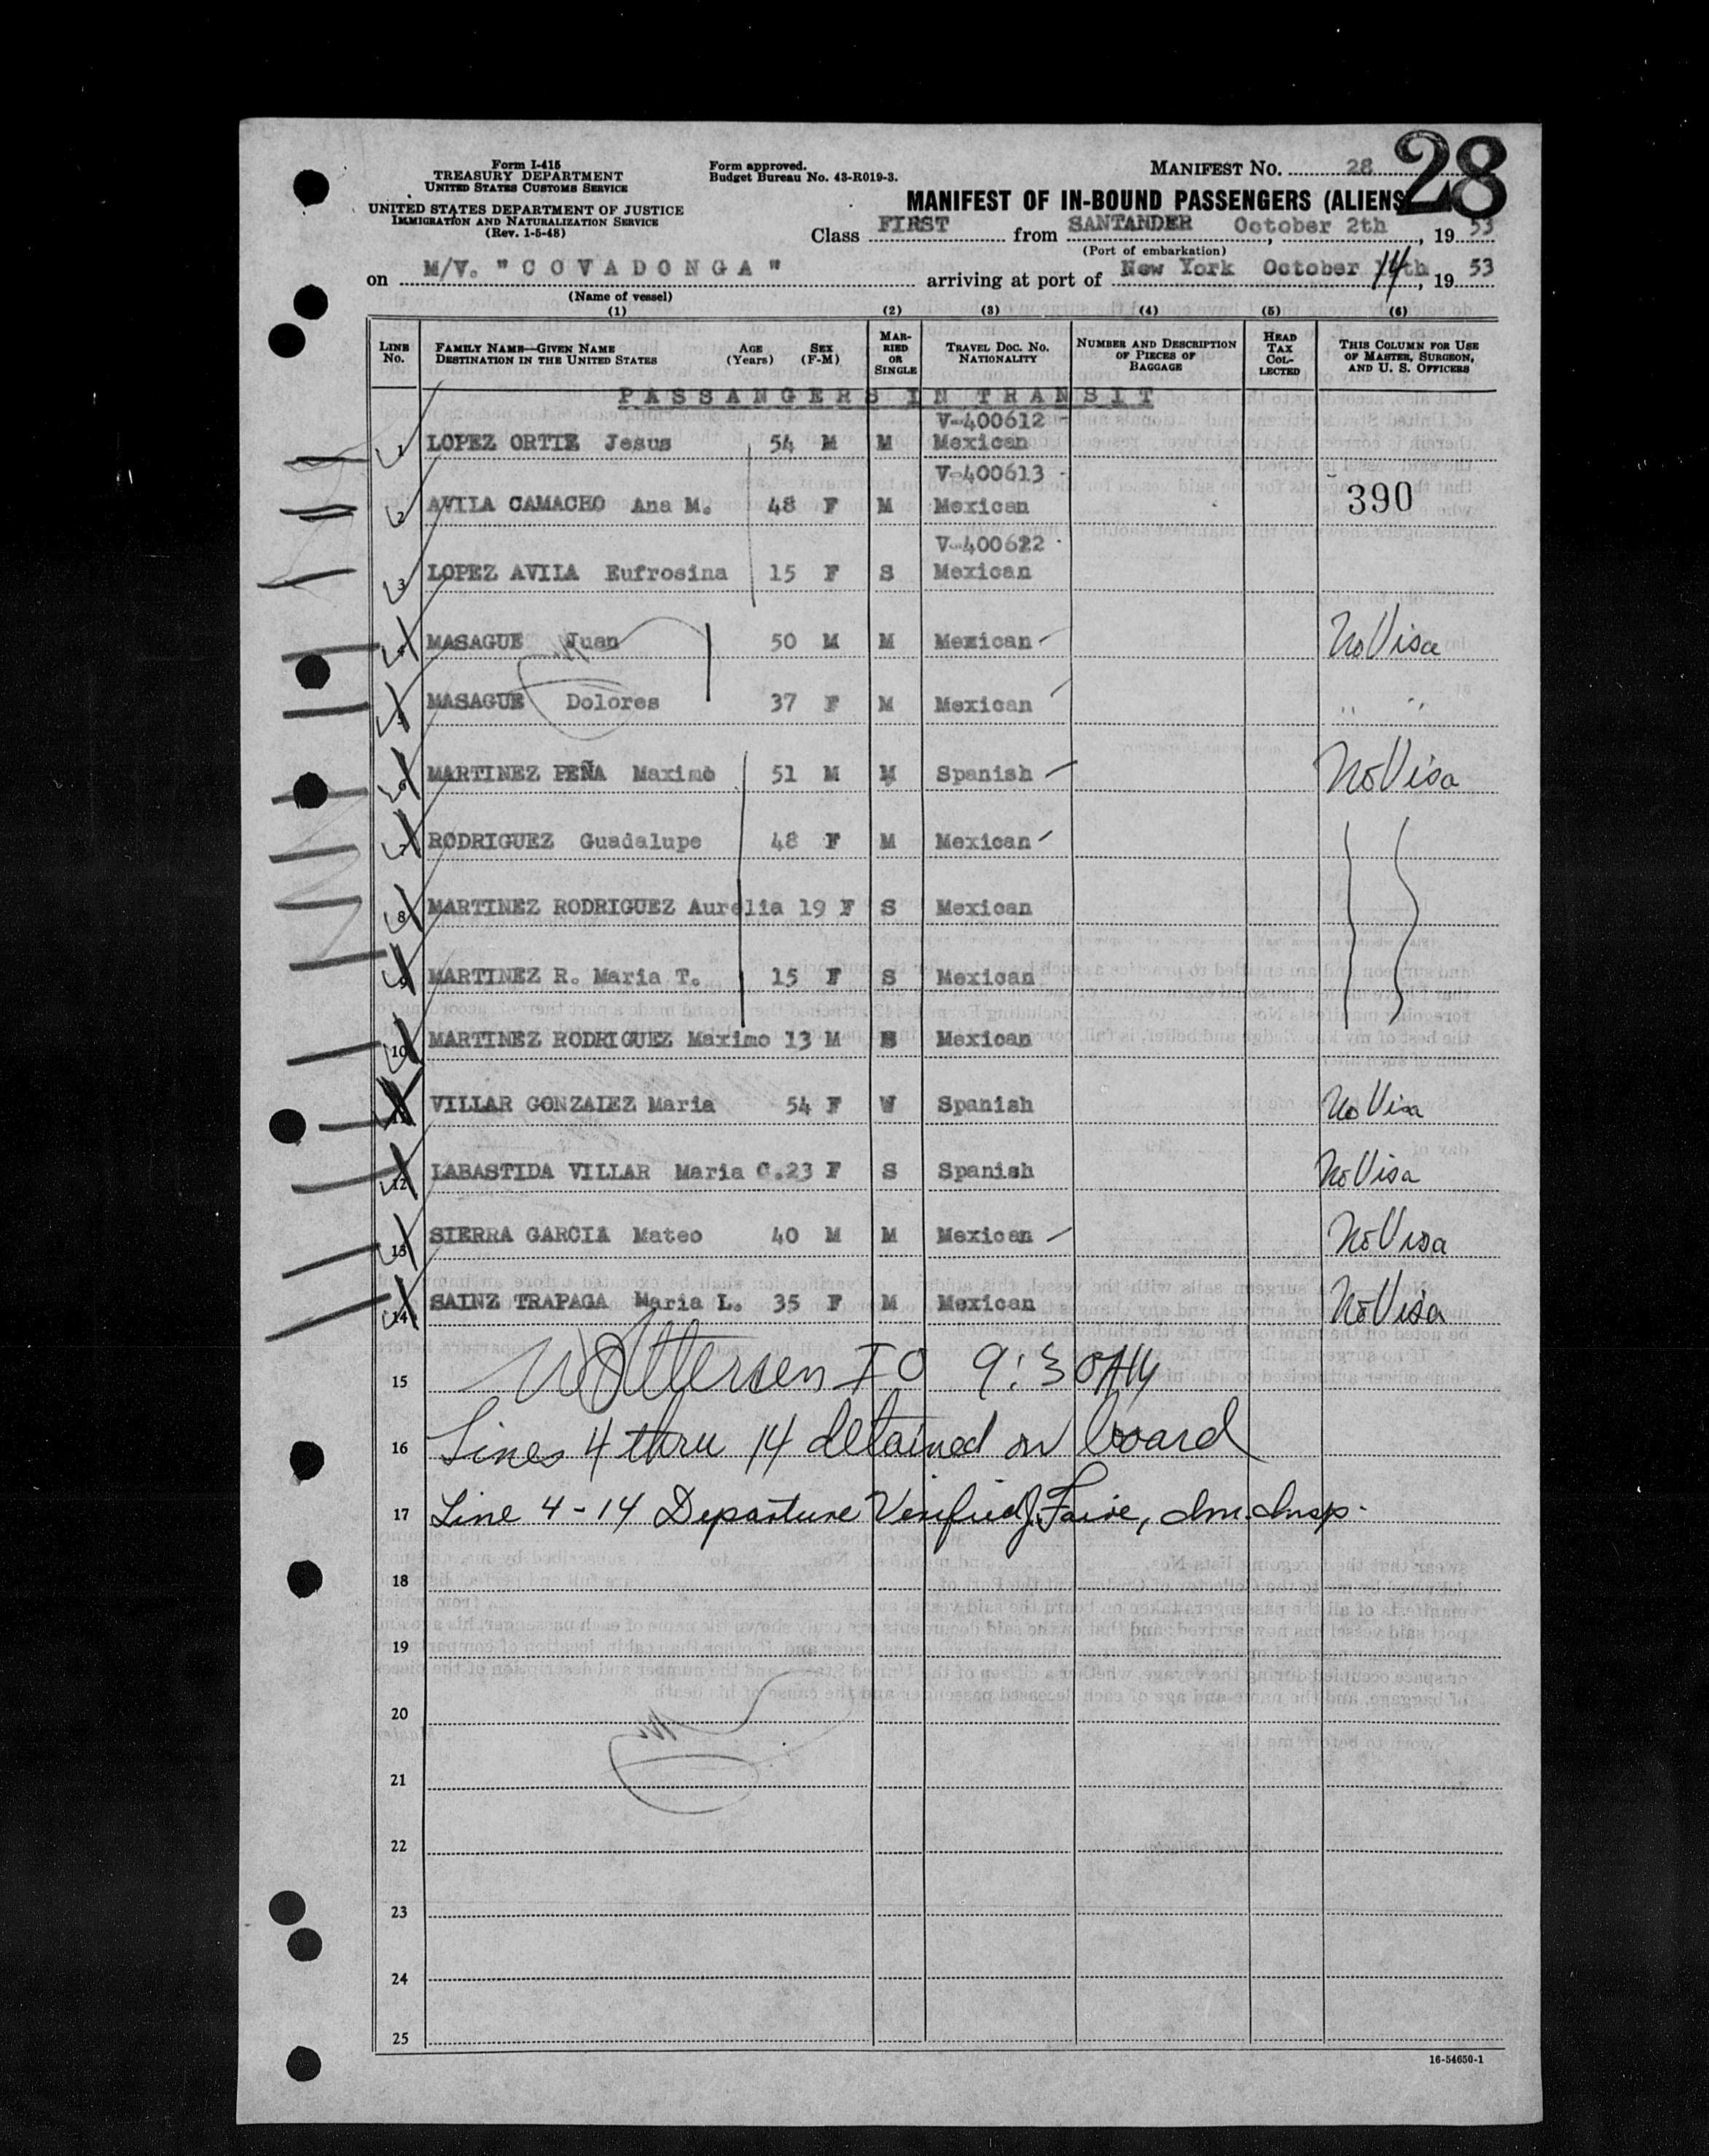 Form I-415
TREASURY DEPARTMENT
UNITED STATES CUSTOMS SERVICE
UNITED STATES DEPARTMENT OF JUSTICE
IMMIGRATION AND NATURALIZATION SERVICE
(Rev. 1-5-48)
Form approved.
Budget Bureau No. 43-R019-3.
MANIFEST No. 28
28
MANIFEST OF IN-BOUND PASSENGERS (ALIENS
Class FIRST from SANTANDER October 2th, 1953
(Port of embarkation)
on M/V. "COVADONGA" arriving at port of New York October 14th, 1953
(Name of vessel)
(1) (2) (3) (4) (5) (6)
LINE No. FAMILY NAME—GIVEN NAME DESTINATION IN THE UNITED STATES AGE (Years) SEX (F-M) MARRIED OR SINGLE TRAVEL DOC. NO. NATIONALITY NUMBER AND DESCRIPTION OF PIECES OF BAGGAGE HEAD TAX COLLECTED THIS COLUMN FOR USE OF MASTER, SURGEON, AND U. S. OFFICERS
PASSANGERS IN TRANSIT
V-400612
1 LOPEZ ORTIZ Jesus 54 M M Mexican
V-400613
2 AVILA CAMACHO Ana M. 48 F M Mexican 390
V-400622
3 LOPEZ AVILA Eufrosina 15 F S Mexican
4 MASAGUE Juan 50 M M Mexican No Visa
5 MASAGUE Dolores 37 F M Mexican " "
6 MARTINEZ PEÑA Maximo 51 M M Spanish No Visa
7 RODRIGUEZ Guadalupe 48 F M Mexican
8 MARTINEZ RODRIGUEZ Aurelia 19 F S Mexican
9 MARTINEZ R. Maria T. 15 F S Mexican
10 MARTINEZ RODRIGUEZ Maximo 13 M S Mexican
11 VILLAR GONZALEZ Maria 54 F W Spanish No Visa
12 LABASTIDA VILLAR Maria C. 23 F S Spanish No Visa
13 SIERRA GARCIA Mateo 40 M M Mexican No Visa
14 SAINZ TRAPAGA Maria L. 35 F M Mexican No Visa
15 9:30 AM
16 Lines 4 thru 14 detained on board
17 Line 4-14 Departure Verified J. Faire, Im. Insp.
18
19
20
21
22
23
24
25
16-54650-1